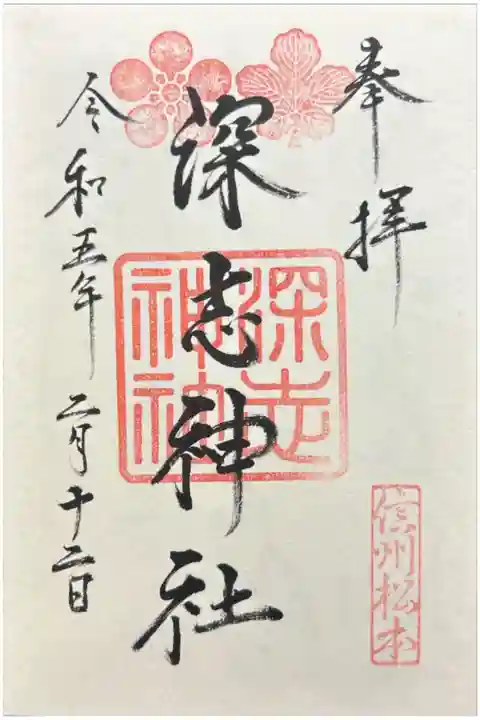 奉拝
信州松本
深志神社
深志神社
令和五年二月十二日